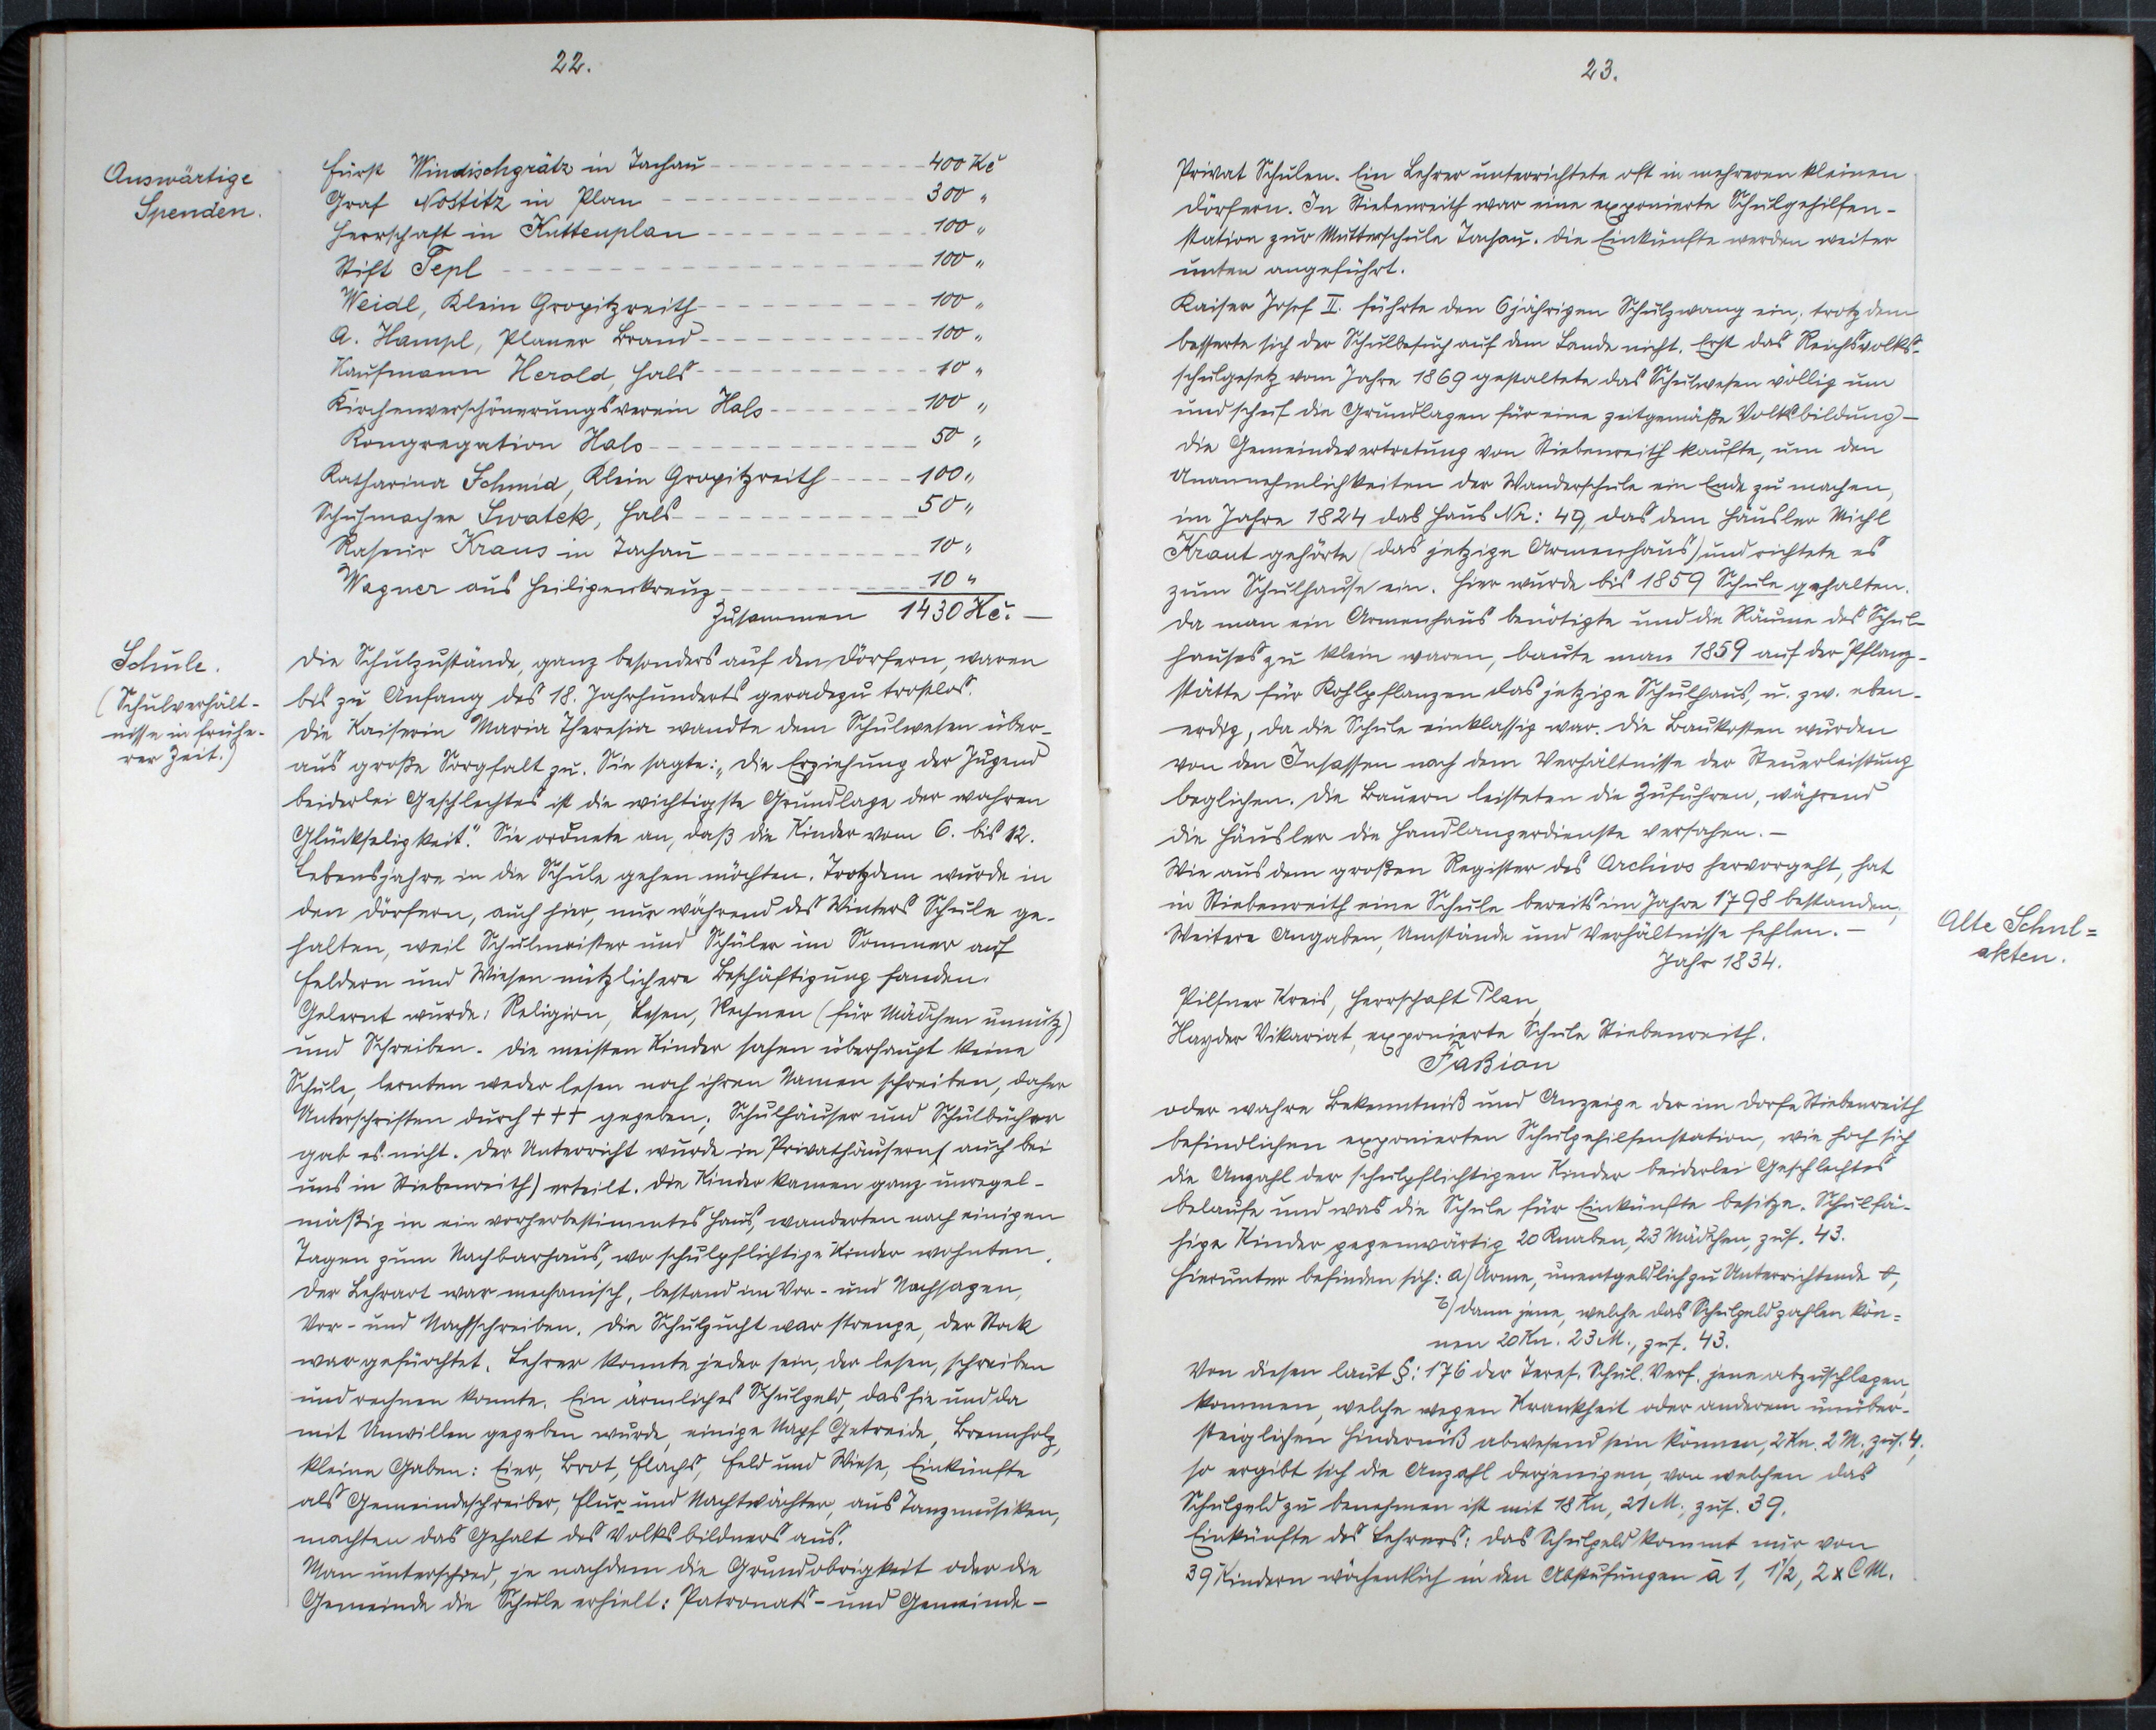 22.
Auswärtige
Spenden.
Fürst Windischgrätz in Tachau 400 Kč
Graf Nostitz in Plan 300 "
Herrschaft in Kuttenplan 100 "
Stift Tepl 100 "
Weidl, Klein Gropitzreith 100 "
A. Hampl, Planer Brand 100 "
Kaufmann Herold, Hals 10 "
Kirchenverschönerungsverein Hals 100 "
Kongregation Hals 50 "
Katharina Schmid, Klein Gropitzreith 100 "
Schuhmacher Swatek, Hals 50 "
Kraus in Tachau 10 "
Wagner aus Heiligenkreuz 10 "
Zusammen 1430 Kč. —
Schule.
(Schulverhält-
nisse in frühe-
rer Zeit.)
Die Schulzustände, ganz besonders auf den Dörfern, waren
bis zu Anfang des 18. Jahrhunderts geradezu trostlos.
Die Kaiserin Maria Theresia wandte dem Schulwesen über-
aus große Sorgfalt zu. Sie sagte: „Die Erziehung der Jugend
beiderlei Geschlechtes ist die wichtigste Grundlage der wahren
Glückseligkeit." Sie ordnete an, daß die Kinder vom 6. bis 12.
Lebensjahre in die Schule gehen möchten. Trotzdem wurde in
den Dörfern, auch hier, nur während des Winters Schule ge-
halten, weil Schulmeister und Schüler im Sommer auf
Feldern und Wiesen nützlichere Beschäftigung fanden.
Gelernt wurde: Religion, Lesen, Rechnen (für Mädchen unnütz)
und Schreiben. Die meisten Kinder sahen überhaupt keine
Schule, lernten weder lesen noch ihren Namen schreiben, daher
Unterschriften durch +++ gegeben; Schulhäuser und Schulbücher
gab es nicht. Der Unterricht wurde in Privathäusern (auch bei
uns in Stiebenreith) erteilt. Die Kinder kamen ganz unregel-
mäßig in ein vorherbestimmtes Haus, wanderten nach einigen
Tagen zum Nachbarhaus, wo schulpflichtige Kinder wohnten.
Der Lehrart war mechanisch, bestand im Vor- und Nachsagen,
Vor- und Nachschreiben. Die Schulzucht war strenge, der Stock
war gefürchtet. Lehrer konnte jeder sein, der lesen, schreiben
und rechnen konnte. Ein ärmliches Schulgeld, das hie und da
mit Unwillen gegeben wurde, einige Napf Getreide, Brennholz,
kleine Gaben: Eier, Brot, Flachs, Feld und Wiese, Einkünfte
als Gemeindeschreiber, Flur- und Nachtwächter, aus Tanzmusiken,
machten das Gehalt des Volksbildners aus.
Man unterschied, je nachdem die Grundobrigkeit oder die
Gemeinde die Schule erhielt: Patronats- und Gemeinde-
23.
Privat Schulen. Ein Lehrer unterrichtete oft in mehreren kleinen
Dörfern. In Stiebenreith war eine exponierte Schulgehilfen-
station zur Mutterschule Tachau. Die Einkünfte werden weiter
unten angeführt.
Kaiser Josef II. führte den 6jährigen Schulzwang ein, trotzdem
besserte sich der Schulbesuch auf dem Lande nicht. Erst das Reichsvolks-
schulgesetz vom Jahre 1869 gestaltete das Schulwesen völlig um
und schuf die Grundlagen für eine zeitgemäße Volksbildung. —
Die Gemeindevertretung von Stiebenreith kaufte, um den
Unannehmlichkeiten der Wanderschule ein Ende zu machen,
im Jahre 1824 das Haus Nr: 49, das dem Häusler Michl
Kraut gehörte (das jetzige Armenhaus) und richtete es
zum Schulhause ein. Hier wurde bis 1859 Schule gehalten.
Da man ein Armenhaus benötigte und die Räume des Schul-
hauses zu klein waren, baute man 1859 auf der Pflanz-
stätte für Kohlpflanzen das jetzige Schulhaus, u. zw. eben-
erdig, da die Schule einklassig war. Die Baukosten wurden
von den Insassen nach dem Verhältnisse der Steuerleistung
beglichen. Die Bauern leisteten die Zufuhren, während
die Häusler die Handlangerdienste versahen. —
Wie aus dem großen Register des Archivs hervorgeht, hat
in Stiebenreith eine Schule bereits im Jahre 1798 bestanden,
Weitere Angaben, Umstände und Verhältnisse fehlen. —
Alte Schul=
akten.
Jahr 1834.
Pilsner Kreis, Herrschaft Plan,
Hayder Vikariat, exponierte Schule Stiebenreith.
Faßion
oder wahre Bekenntniß und Anzeige der im Dorfe Stiebenreith
befindlichen exponierten Schulgehilfenstation, wie hoch sich
die Anzahl der schulpflichtigen Kinder beiderlei Geschlechtes
belaufe und was die Schule für Einkünfte besitze. Schulfä-
hige Kinder gegenwärtig 20 Knaben, 23 Mädchen, zus. 43.
Hierunter befinden sich: a) Arme, unentgeldlich zu Unterrichtende
b) dann jene, welche das Schulgeld zahlen kön=
nen 20 Kn. 23 M., zus. 43.
Von diesen laut §: 176 der Teres. Schul. Verf. jene abzuschlagen
kommen, welche wegen Krankheit oder anderem unüber-
steiglichen Hinderniß abwesend sein können, 2 Kn. 2 M. zus. 4,
so ergibt sich die Anzahl derjenigen, von welchen das
Schulgeld zu benehmen ist mit 18 Kn, 21 M., zus. 39.
Einkünfte des Lehrers: Das Schulgeld kommt nur von
39 Kindern wöchentlich in den Abstufungen à 1, 1½, 2 x CM.